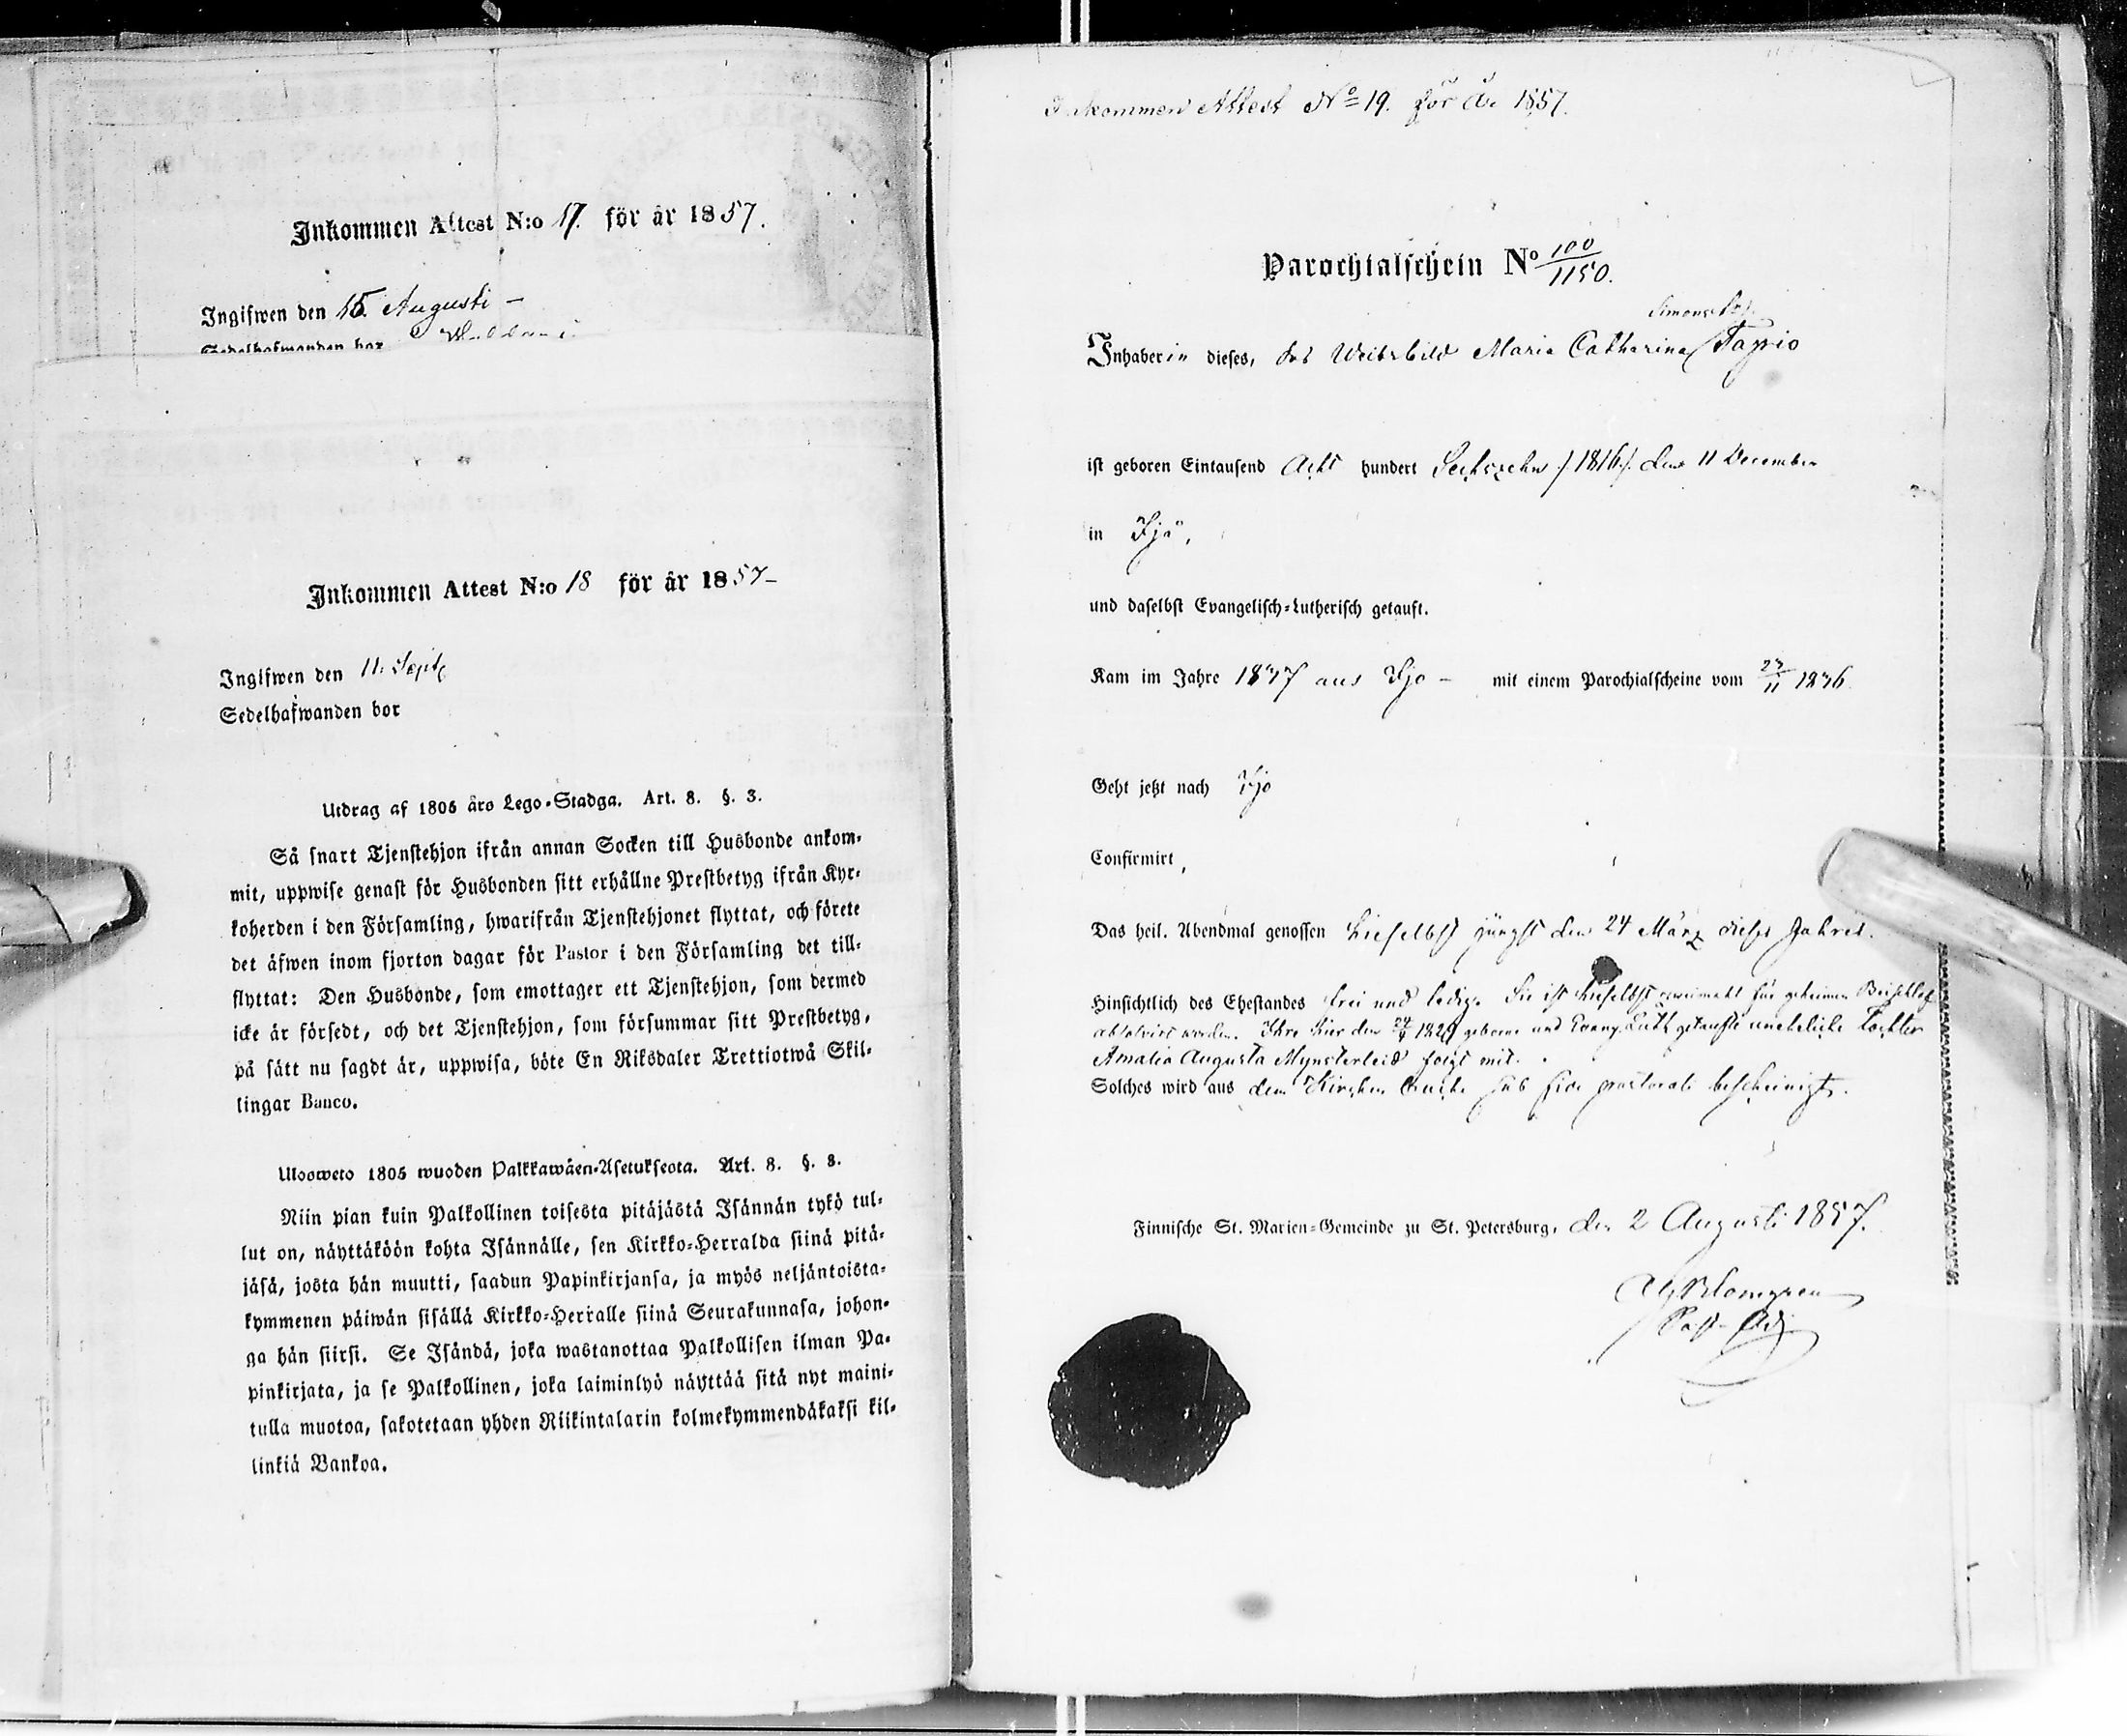 Inkommen Attest N:o 17. för år 1857.
Ingifwen den 15. Augusti –
Sedelhafwanden bor
Inkommen Attest N:o 18 för år 1857–
Ingifwen den 11. Sept
Sedelhafwanden bor
Utdrag af 1805 års Lego-Stadga. Art. 8. §. 3.
Så snart Tjenstehjon ifrån annan Socken till Husbonde ankom-
mit, uppwise genast för Husbonden sitt erhållne Prestbetyg ifrån Kyr-
koherden i den Församling, hwarifrån Tjenstehjonet flyttat, och förete
det äfwen inom fjorton dagar för Pastor i den Församling det till-
flyttat: Den Husbonde, som emottager ett Tjenstehjon, som dermed
icke är försedt, och det Tjenstehjon, som försummar sitt Prestbetyg,
på sätt nu sagdt är, uppwisa, böte En Riksdaler Trettiotwå Skil-
lingar Banco.
Ulosweto 1805 wuoden Palkkawäen-Asetuksesta. Art. 8. §. 3.
Niin pian kuin Palkollinen toisesta pitäjästä Isännän tykö tul-
lut on, näyttäköön kohta Isännälle, sen Kirkko-Herralda siinä pitä-
jäsä, josta hän muutti, saadun Papinkirjansa, ja myös neljäntoista-
kymmenen päiwän sisällä Kirkko-Herralle siinä Seurakunnasa, johon-
ga hän siirsi. Se Isändä, joka wastanottaa Palkollisen ilman Pa-
pinkirjata, ja se Palkollinen, joka laiminlyö näyttää sitä nyt maini-
tulla muotoa, sakotetaan yhden Riikintalarin kolmekymmendäkaksi kil-
linkiä Bankoa.
Inkommen Attest No 19. för år 1857.
Parochialschein No 100/1150.
Simonsd
Inhaberin dieses, das Weibsbild Maria Catharina Tapio
ist geboren Eintausend Acht hundert Sechszehn /1816/. den 11 December
in Ijo,
und daselbst Evangelisch-Lutherisch getauft.
Kam im Jahre 1837 aus Ijo – mit einem Parochialscheine vom 27/11 1836
Geht jetzt nach Ijo
Confirmirt,
Das heil. Abendmal genossen hieselbst jüngst den 24 März dieses Jahres.
Hinsichtlich des Ehestandes frei und ledig. Sie ist hieselbst zweimahl für geheimen Beischlaf
absolvirt worden. Ihre hier den geborne und Evang. Luth getaufte uneheliche Tochter
Amalia Augusta Mynsterleid folgt mit.
Solches wird aus dem Kirchenbuche sub fide pastorali bescheinigt.
Finnische St. Marien-Gemeinde zu St. Petersburg, den 2 Augusti 1857.
Blomgren
Past. Adj